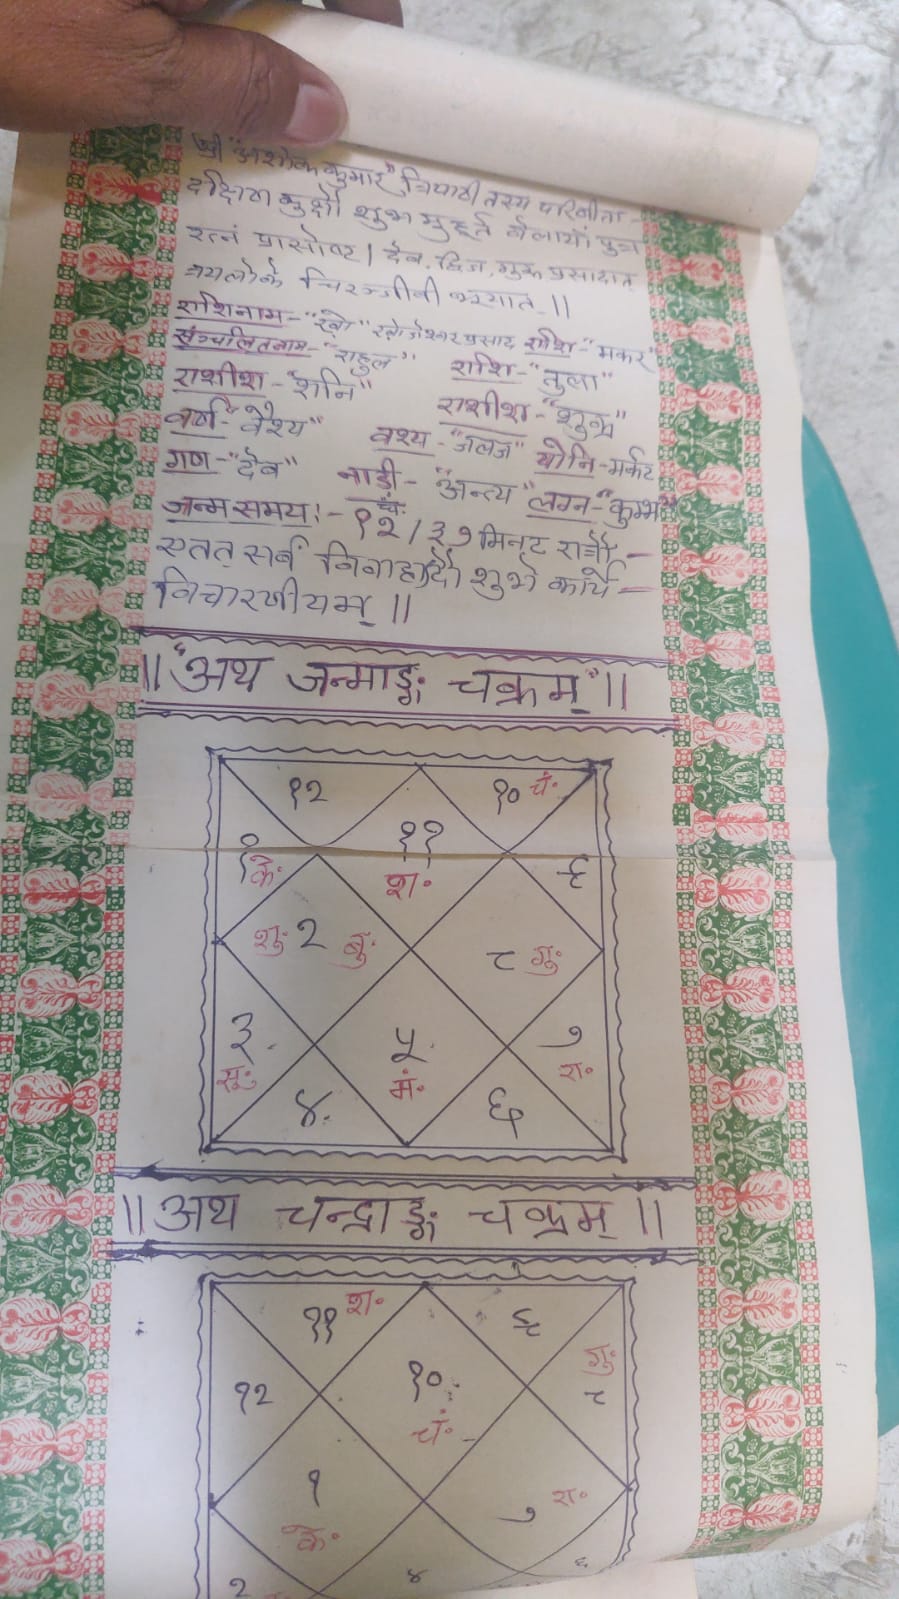 श्री "अशोक कुमार" त्रिपाठी तस्य परिणीता -
दक्षिण कुक्षौ शुभ मुहूर्ते वेलायां पुत्र
रत्नं प्रासोष्ट। देव. द्विज. गुरू प्रसादात्
चिरञ्जीवी भूयात् ॥
राशिनाम - "खो" प्रसाद राशि - "मकर"
संप्रचलितनाम - "राहुल" राशि - "तुला"
राशीश - "शनि" राशीश - "शुक्र"
वर्ण - "वैश्य" वश्य - "जलज" योनि - मर्कट
गण - "देव" नाड़ी - "अन्त्य" लग्न - "कुम्भ"
जन्म समय :- १२ / ३७ मिनट रात्रौ -
एतत् सर्वं विवाहादौ शुभे कार्ये -
विचारणीयम् ॥
॥ "अथ जन्माङ्ग चक्रम्" ॥
१२ १० चं.
११
१ के. श. ९
शु. २ बु. ८ गु.
३ सू. ५ मं. ७ रा.
४ ६
॥ अथ चन्द्राङ्ग चक्रम् ॥
११ श. ९
१२ १० चं. गु. ८
१ के. ७ रा.
२ ४ ६